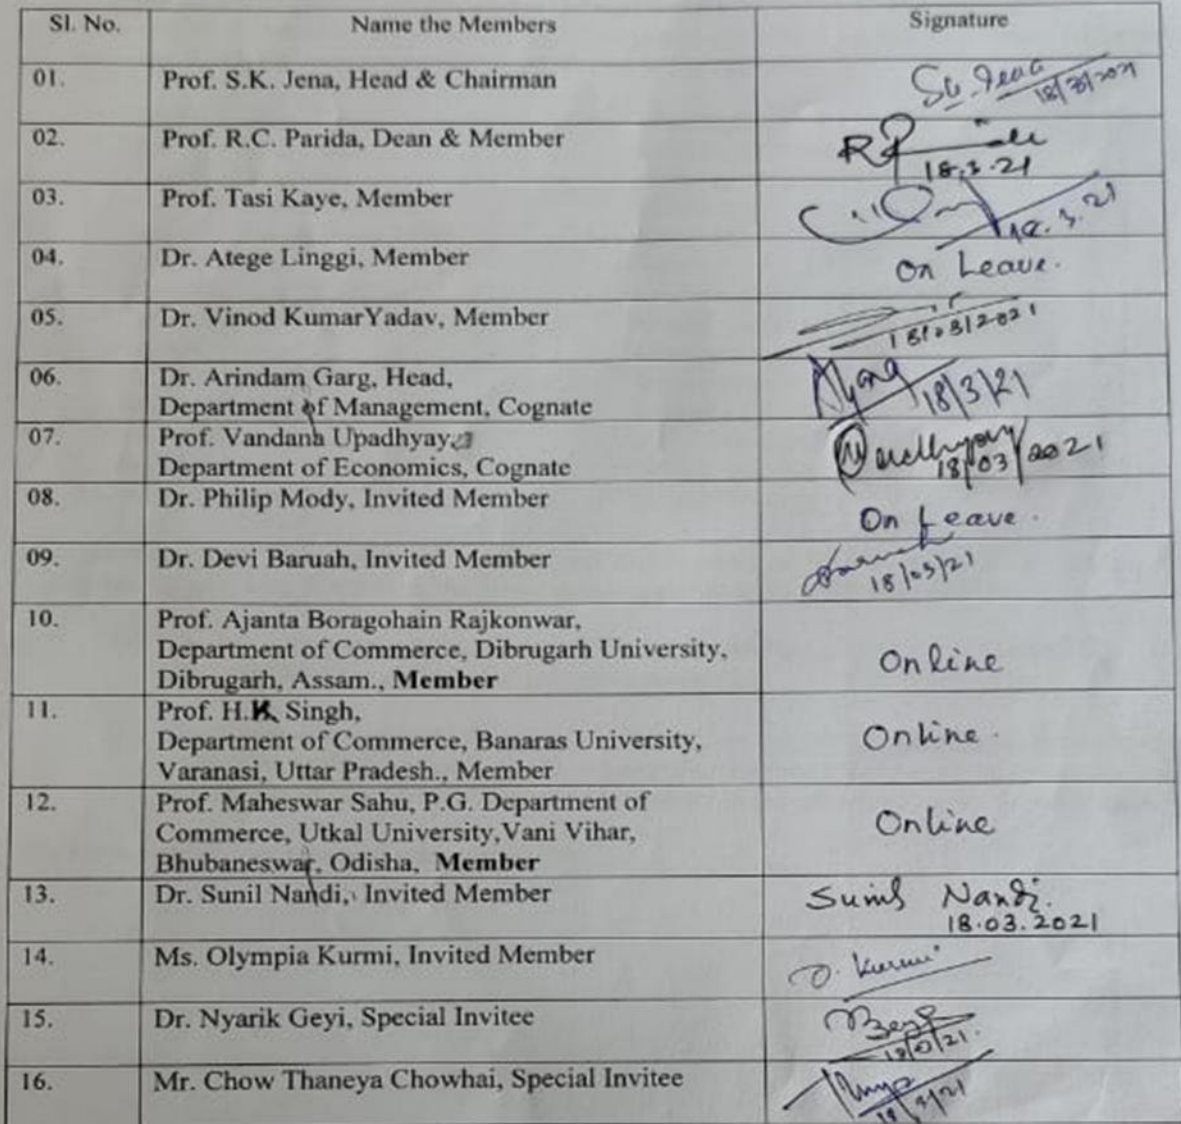 Sl. No. Name the Members Signature
01. Prof. S.K. Jena, Head & Chairman SK Jena
18/3/2021
02. Prof. R.C. Parida, Dean & Member
18.3.21
03. Prof. Tasi Kaye, Member
18.3.21
04. Dr. Atege Linggi, Member On Leave.
05. Dr. Vinod KumarYadav, Member
18/03/2021
06. Dr. Arindam Garg, Head,
Department of Management, Cognate 18/3/21
07. Prof. Vandana Upadhyay,
Department of Economics, Cognate 18/03/2021
08. Dr. Philip Mody, Invited Member On Leave.
09. Dr. Devi Baruah, Invited Member
18/03/21
10. Prof. Ajanta Boragohain Rajkonwar,
Department of Commerce, Dibrugarh University,
Dibrugarh, Assam., Member Online
11. Prof. H.K Singh,
Department of Commerce, Banaras University, Online.
Varanasi, Uttar Pradesh., Member
12. Prof. Maheswar Sahu, P.G. Department of
Commerce, Utkal University,Vani Vihar, Online
Bhubaneswar, Odisha, Member
13. Dr. Sunil Nandi, Invited Member Sunil Nandi.
18.03.2021
14. Ms. Olympia Kurmi, Invited Member O. Kurmi
15. Dr. Nyarik Geyi, Special Invitee
16. Mr. Chow Thaneya Chowhai, Special Invitee
18/3/21